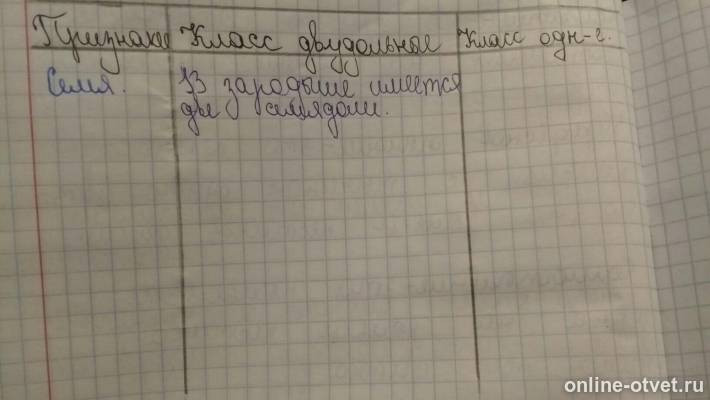 Признаки Класс двудольные Класс одн-е.
Семя. 1) В зародыше имеется
две семядоли.
online-otvet.ru